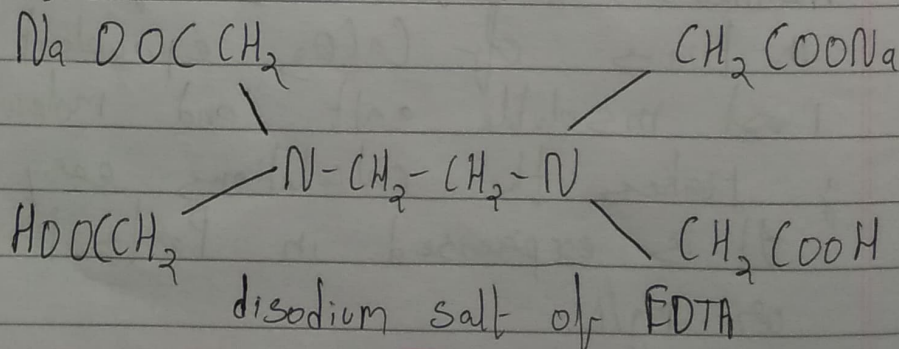 NaOOCCH₂ CH₂COONa
N-CH₂-CH₂-N
HOOCCH₂ CH₂COOH
disodium salt of EDTA